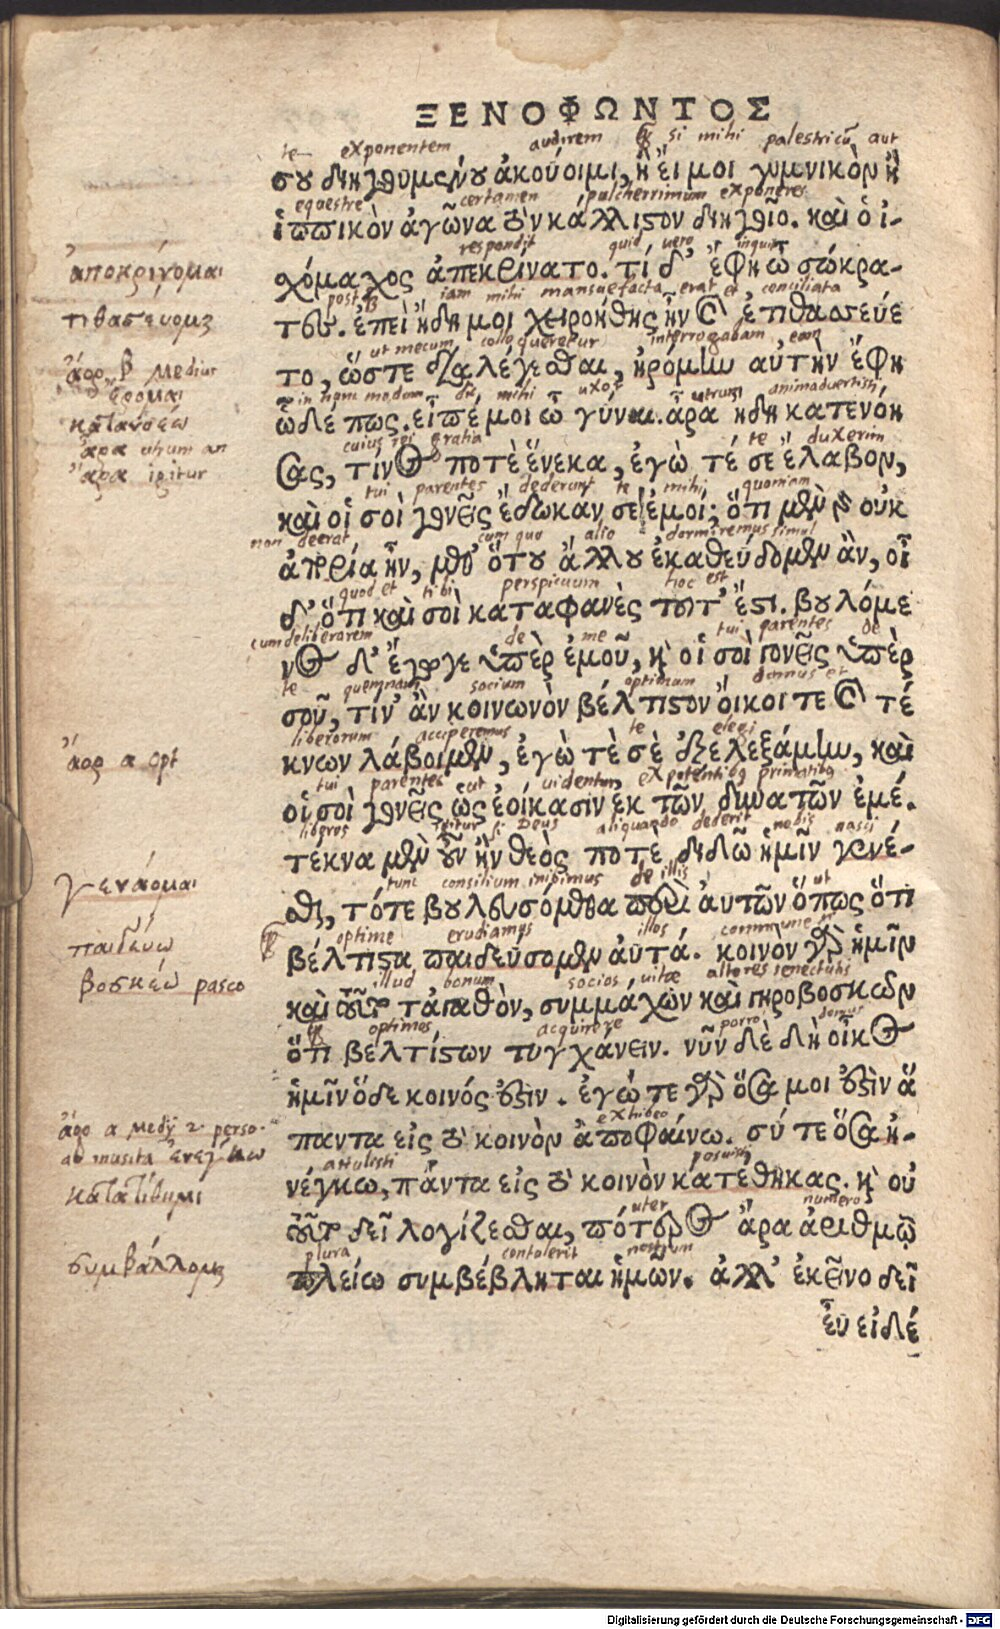 ΞΕΝΟΦΩΝΤΟΣ
te exponentem audirem si mihi palestricū aut
σου διηγουμένου ἀκούοιμι, ἢ εἴ μοι γυμνικὸν ἢ
equestre certamen pulcherrimum exponeres
ἱππικὸν ἀγῶνα τὸν κάλλιστον διηγοῖο. καὶ ὁ ἰ-
respondit quid vero inquit
ἀποκρίνομαι
χόμαχος ἀπεκρίνατο. τί δ' ἔφη ὦ σώκρα-
post iam mihi mansuefacta erat et conciliata
τιθασεύομαι
τες. ἐπεὶ ἤδη μοι χειροήθης ἦν καὶ ἐτιθασσεύε
ut mecum colloqueretur interrogabam eam
ἀορ. β Medius
το, ὥστε διαλέγεσθαι, ἠρόμην αὐτὴν ἔφη
ἔρομαι
in hunc modum dic mihi uxor utrum animadvertisti
κατανοέω
ὧδέ πως. εἰπέ μοι ὦ γύναι. ἆρα ἤδη κατενόη
ἆρα utrum an
cuius rei gratia te duxerim
ἄρα igitur
σας, τίνος ποτὲ ἕνεκα, ἐγώ τέ σε ἔλαβον,
tui parentes dederunt te mihi quoniam
καὶ οἱ σοὶ γονεῖς ἔδωκαν σε ἐμοί; ὅτι μὲν γὰρ οὐκ
non deerat cum quo alio dormiremus simul
ἀπορία ἦν, μεθ' ὅτου ἄλλου ἐκαθεύδομεν ἂν, οἶ
quod et tibi perspicuum hoc est
δ' ὅτι καὶ σοὶ καταφανὲς τοῦτ' ἔστι. βουλόμε
cum deliberarem de me tui parentes de
νος δ' ἔγωγε ὑπὲρ ἐμοῦ, καὶ οἱ σοὶ γονεῖς ὑπὲρ
te quemnam socium optimum domus et
σοῦ, τίν' ἂν κοινωνὸν βέλτιστον οἴκου τε καὶ τέ
liberorum acciperemus te elegi
ἀορ α opt
κνων λάβοιμεν, ἐγώ τε σὲ ἐξελεξάμην, καὶ
tui parentes ut videntur expotentibq primatibq
οἱ σοὶ γονεῖς ὡς ἐοίκασιν ἐκ τῶν δυνατῶν ἐμέ.
liberos igitur si Deus aliquando dederit nobis nasci
τέκνα μὲν οὖν ἢν θεὸς ποτε διδῷ ἡμῖν γενέ-
γενάομαι
tunc consilium inibimus de illis ut
σθαι, τότε βουλευσόμεθα περὶ αὐτῶν ὅπως ὅτι
optime erudiamus illos commune
παιδεύω
βέλτιστα παιδεύσομεν αὐτά. κοινὸν γὰρ ἡμῖν
illud bonum socios vitae altores senectutis
βοσκέω pasco
καὶ τοῦτο τἀγαθὸν, συμμάχων καὶ γηροβοσκῶν
optimos acquirere porro domus
ὅτι βελτίστων τυγχάνειν. νῦν δὲ δὴ οἶκος
ἡμῖν ὅδε κοινός ἐστιν. ἐγώ τε γὰρ ὅσα μοι ἐστὶν ἅ
exhibeo
ἀορ α medij 2 perso.
παντα εἰς τὸ κοινὸν ἀποφαίνω. σύ τε ὅσα ἠ-
ab inusita ἐνέγκω
attulisti posuisti
νέγκω, πάντα εἰς τὸ κοινὸν κατέθηκας. καὶ οὐ
κατατίθημι
uter numero
τοῦτο δεῖ λογίζεσθαι, πότερος ἄρα ἀριθμῷ
plura contulerit nostrum
συμβάλλομαι
πλείω συμβέβληται ἡμῶν. ἀλλ' ἐκεῖνο δεῖ
εὖ εἰδέ
Digitalisierung gefördert durch die Deutsche Forschungsgemeinschaft - DFG